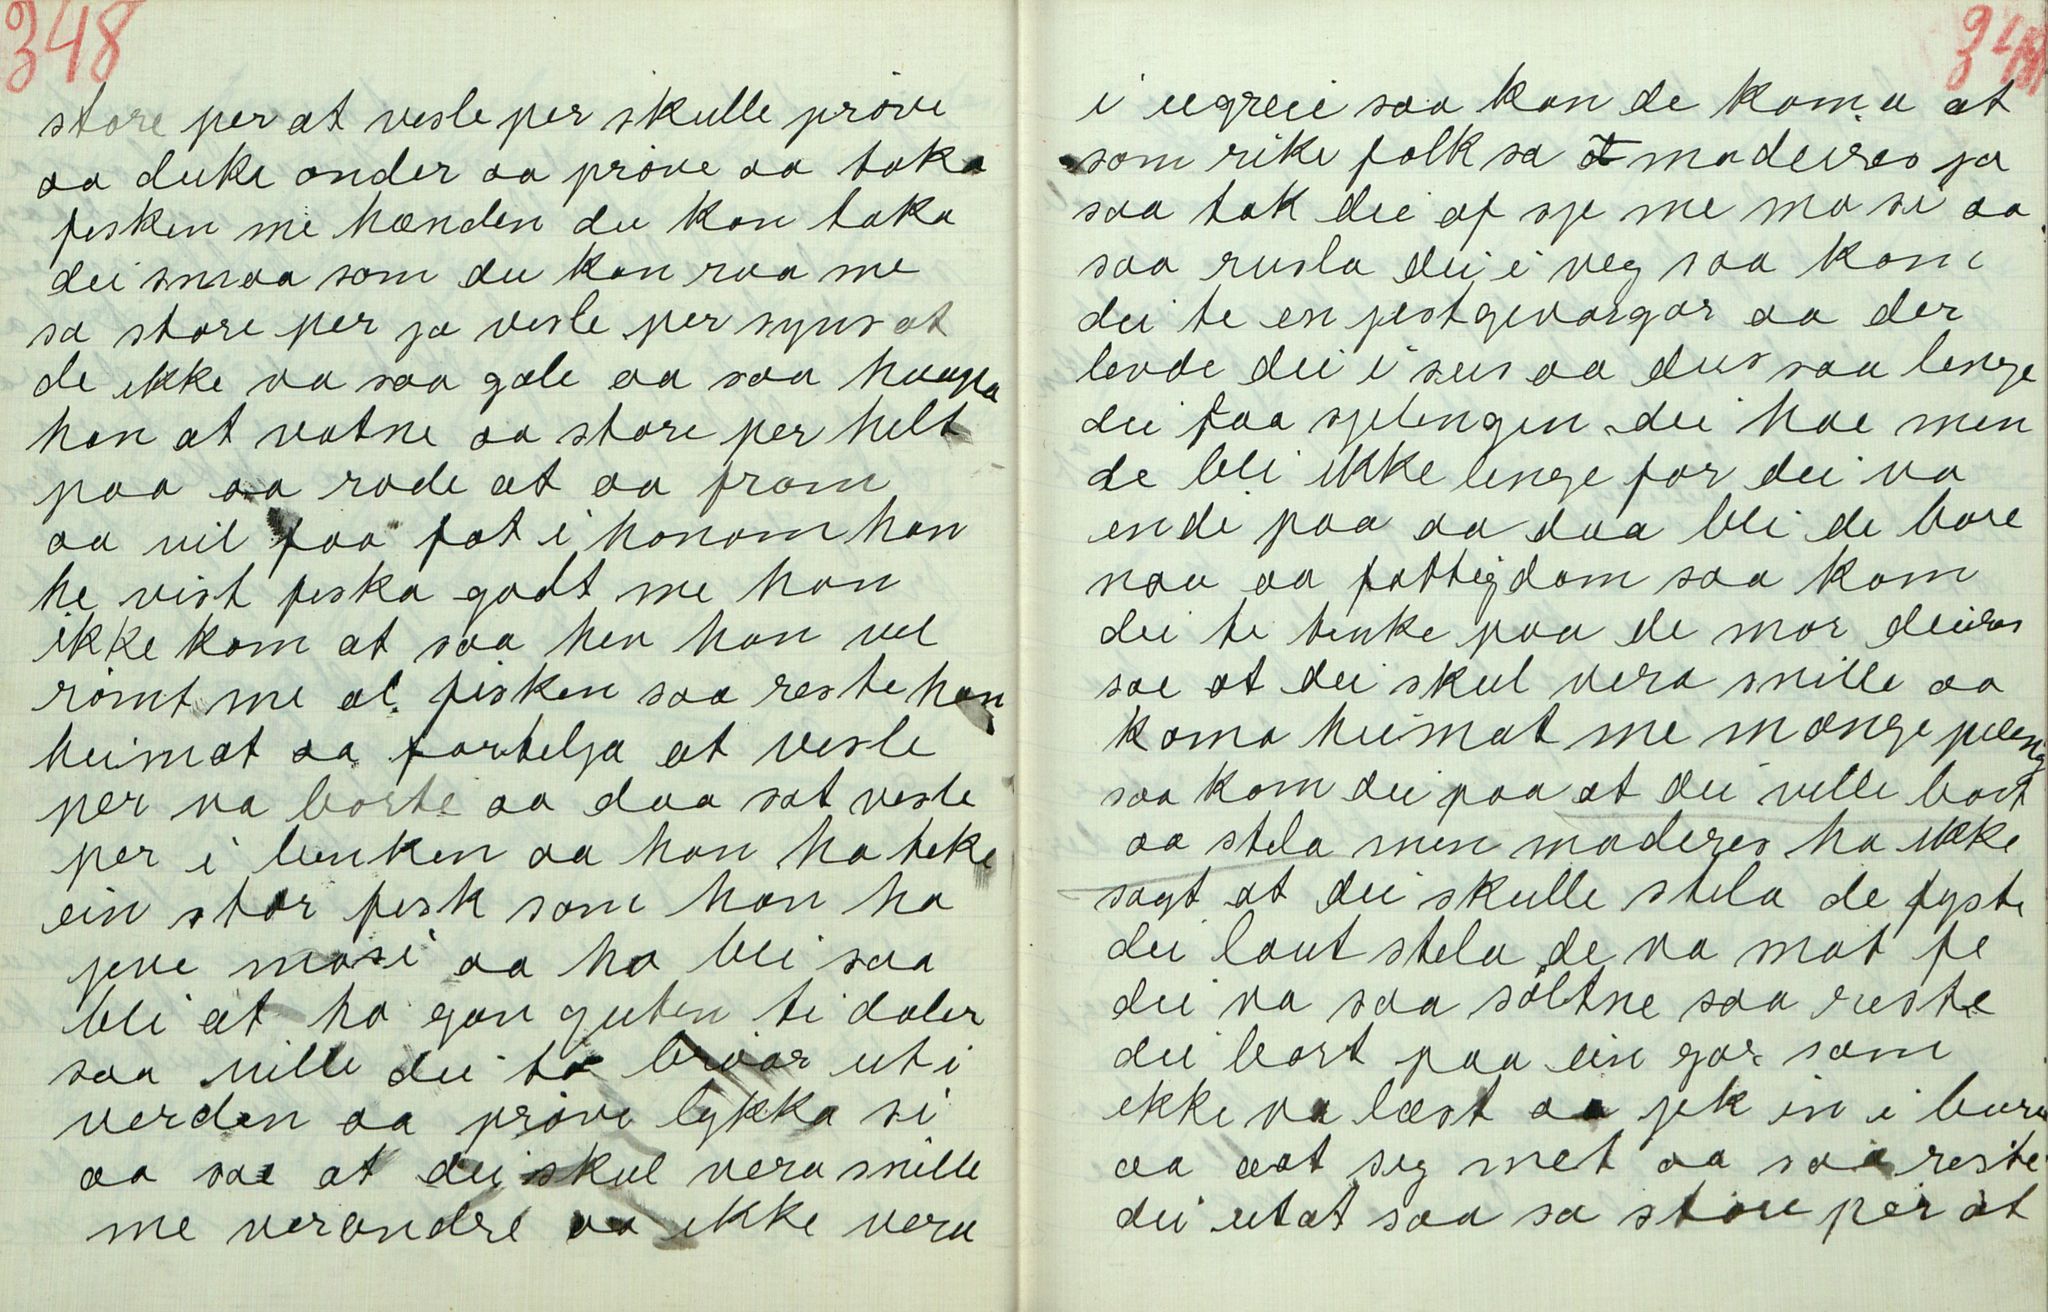 348
store per at vesle per skulle pröve
aa duke onder aa pröve aa taka
fisken me hænden du kan taka
dei smaa som du kan raa me
sa store per ja vesle per syns at
de ikke va saa gale aa saa haapa
han at vatne aa store per helt
paa aa rade at aa fram
aa vil faa fat i honom han
he vist fiska godt me han
ikke kom at saa hev han vel
römt me al fisken saa reste han
heimat aa fortelja at vesle
per va borte aa daa sat vesle
per i benken aa han ha teke
ein stor fisk som han ha
jeve mosi aa ho blei saa
blei at ho gav guten ti daler
saa ville dei to bröar ut i
verden aa pröve lykka si
aa sae at dei skul vera snille
me verandre aa ikke vera
349
i ugreie saa kan de koma at
som rike folk sa madeires ja
saa tok dei afsje me mo si aa
saa rusla dei i veg saa kom
dei te en jestgevargar aa der
levde dei i sus aa dus saa lenge
dei faa sjelingen dei hae men
de blei ikke lenge for dei va
ende paa aa daa blei de bare
nau aa fattigdom saa kom
dei te tenke paa de mor deires
sae at dei skul vera snille aa
koma heimat me mange peeng
saa kom dei paa at dei ville bort
aa stela men moderes ha ikke
sagt at dei skulle stela de fyste
dei laut stela de va mat fe
dei va saa söltne saa reiste
dei bort paa ein gar som
ikke va læst aa jek in i bure
aa aat seg met aa saa reiste
dei utat saa sa store per at